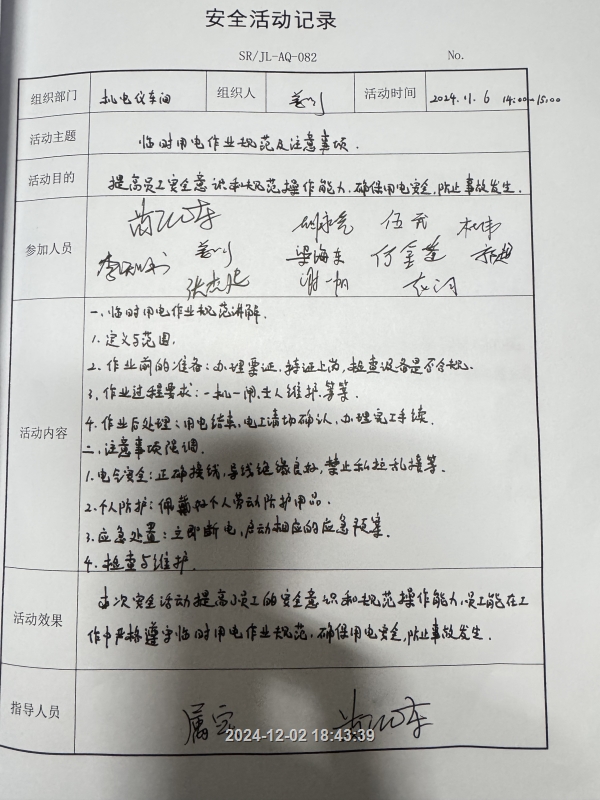 安全活动记录
SR/JL-AQ-082 No.
组织部门 机电仪车间 组织人 活动时间 2024.11.6 14:00-15:00
活动主题 临时用电作业规范及注意事项.
活动目的 提高员工安全意识和规范操作能力,确保用电安全,防止事故发生.
参加人员
梁海东
活动内容
一.临时用电作业规范讲解.
1.定义与范围.
2.作业前的准备:办理票证,持证上岗,检查设备是否合规.
3.作业过程要求:一机一闸,专人维护.等等.
4.作业后处理:用电结束,电工清场确认,办理完工手续.
二.注意事项强调.
1.电气安全:正确接线,导线绝缘良好,禁止私拉乱接等.
2.个人防护:佩戴好个人劳动防护用品.
3.应急处置:立即断电,启动相应的应急预案.
4.检查与维护.
活动效果 本次安全活动提高了员工的安全意识和规范操作能力,员工能在工
作中严格遵守临时用电作业规范,确保用电安全,防止事故发生.
指导人员
2024-12-02 18:43:39